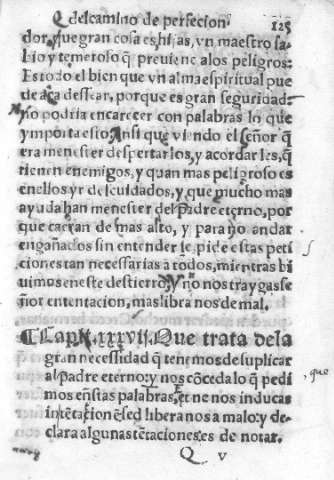 Q del camino de perfecion. 125
dor, que gran cosa es hijas, vn maestro sa-
bio y temeroso q̃ preuiene a los peligros:
Es todo el bien que vn alma espiritual pue
de aca dessear, porque es gran seguridad:
no podria encarecer con palabras lo que
ymporta esto. Ansi que viendo el Señor q̃
era menester despertarlos, y acordarles, q̃
tienen enemigos, y quan mas peligroso es
en ellos yr descuidados, y que mucho mas
ayuda han menester del Padre eterno, por
que caeran de mas alto, y para no andar
engañados sin entender le pide estas peti
ciones tan necessarias a todos, mientras bi
uimos en este destierro, y no nos traygas se
ñor en tentacion, mas libra nos de mal.
Cap. xxxvij. Que trata de la
gran necessidad q̃ tenemos de suplicar
al padre eterno: y nos cõceda lo q̃ pedi
mos en estas palabras, et ne nos inducas
in tẽtationẽ sed libera nos a malo: y de-
clara algunas tẽtaciones: es de notar.
que
Q v